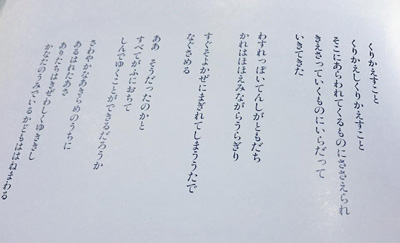 くりかえすこと
くりかえしくりかえすこと
そこにあらわれてくるものにささえられ
きえさっていくものにいらだって
いきてきた
わすれっぽいてんしがともだち
かれはほほえみながらうらぎり
すぐそよかぜにまぎれてしまううたで
なぐさめる
ああ そうだったのかと
すべてがふにおちて
しんでゆくことができるだろうか
さわやかなあきらめのうちに
あるはれたあさ
ありたちはきぜわしくゆききし
かなたのうみでいるかどもははねまわる